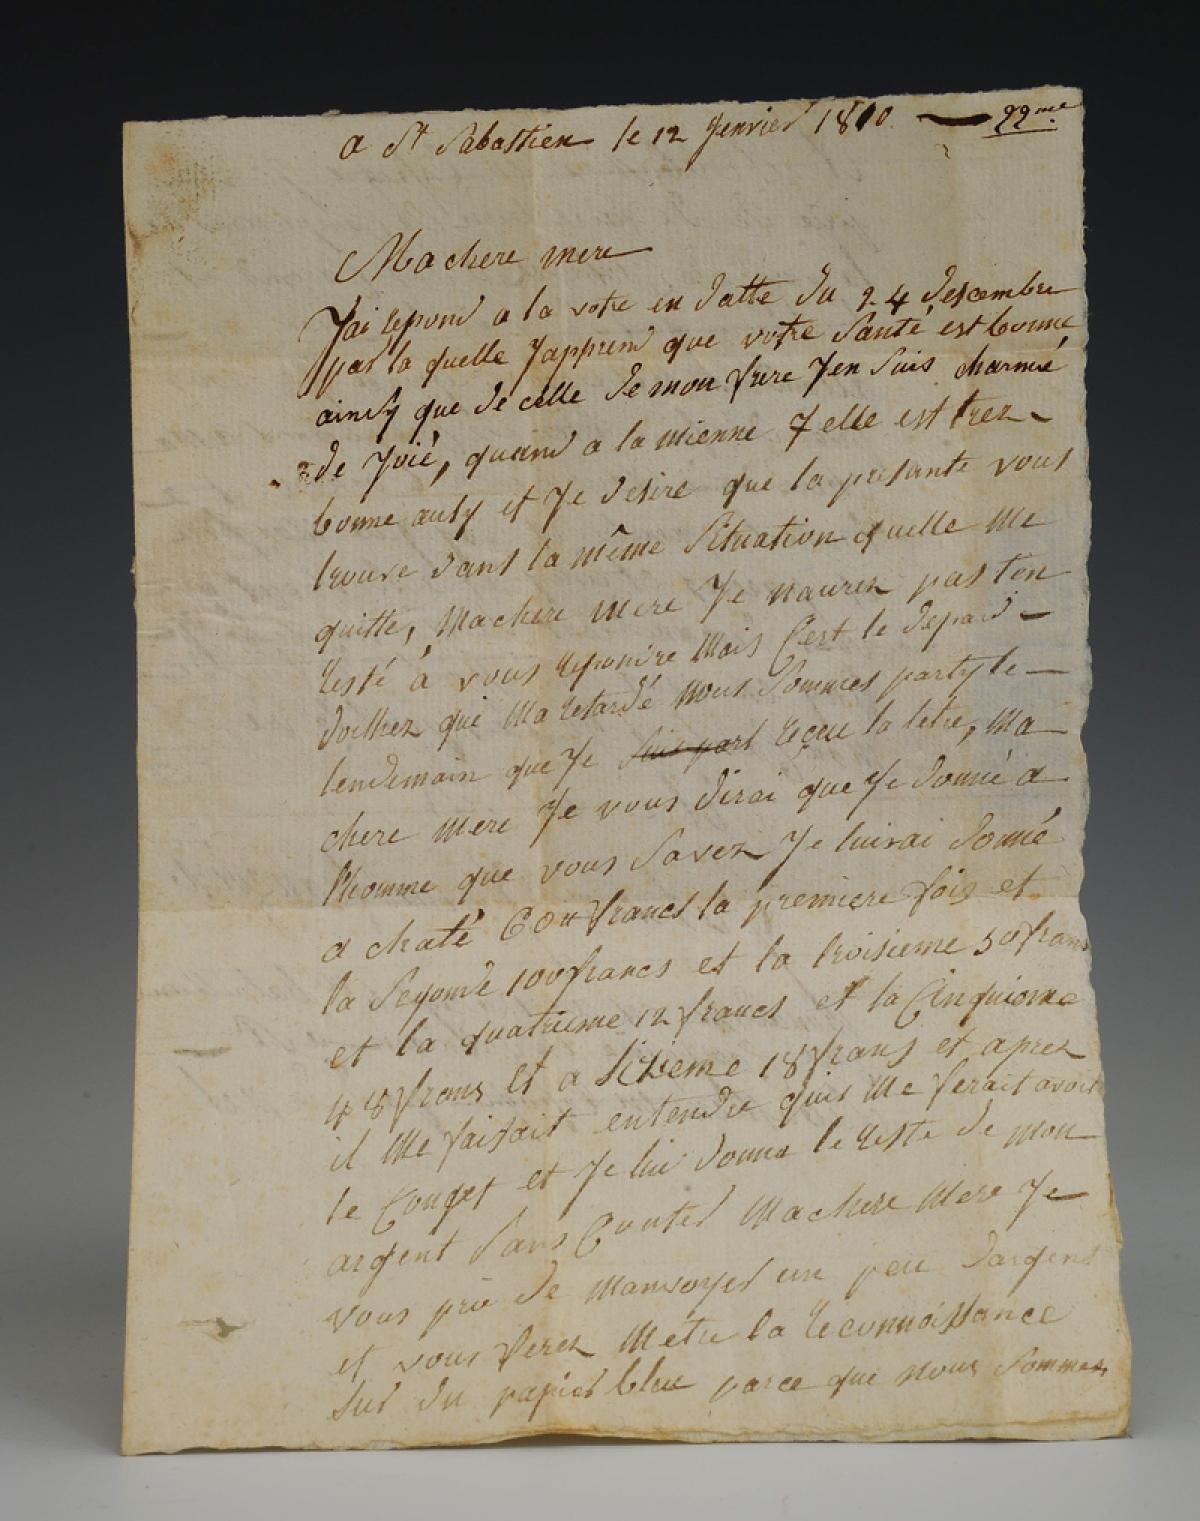 a St Sabastien le 12 Jenvier 1810. — 22me
Machere mere
Jai repond a la votre en datte du 24 descembre
par la quelle Japprend que votre Santé est bonne
ainsy que de celle de mon frere Jen Suis charmé
de Joié, quand a la mienne elle est trez
bonne ausy et Je desire que la presante vous
trouve dans la même Situation quelle me
quitte, Machere mere Je naurez pas ten
resté à vous repondre Mais Cest le depard
dailhez qui Ma retardé nous Sommes party le
lendemain que Je Suis part reçeu la letre, Ma
chere mere Je vous dirai que Je donné a
lhomme que vous Savez Je luirai donné
a chaté 600 francs la premiere fois et
la Segonde 100 francs et la troisieme 50 frans
et la quatrieme 12 francs et la Cinquiome
48 frans et a Sizieme 18 frans et aprez
il Me faisait entendre quil Me ferait avoir
le Conget et Je lui donna le reste de mon
argent Sans Conter Machere Mere Je
vous prie de Manvoyer un peu dargent
et vous ferez Metre la reconnaissance
Sur du papier bleu parce que nous Sommes